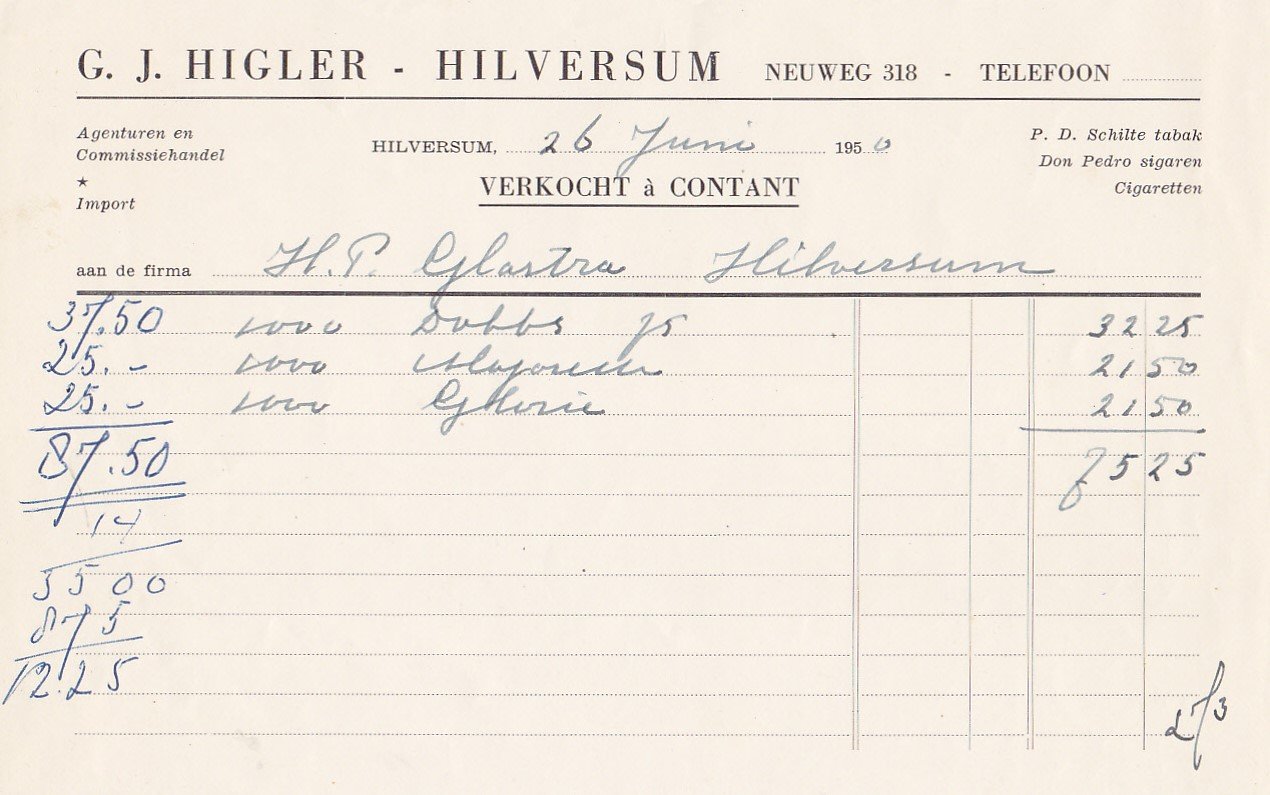 G. J. HIGLER - HILVERSUM NEUWEG 318 - TELEFOON
Agenturen en
Commissiehandel
★
Import
HILVERSUM, 26 Juni 1950
VERKOCHT à CONTANT
P. D. Schilte tabak
Don Pedro sigaren
Cigaretten
aan de firma H. P. Glastra Hilversum
37.50 1000 Dobbs 75 32 25
25.- 1000 21 50
25.- 1000 Glorie 21 50
87.50 75 25
14
875
12.25